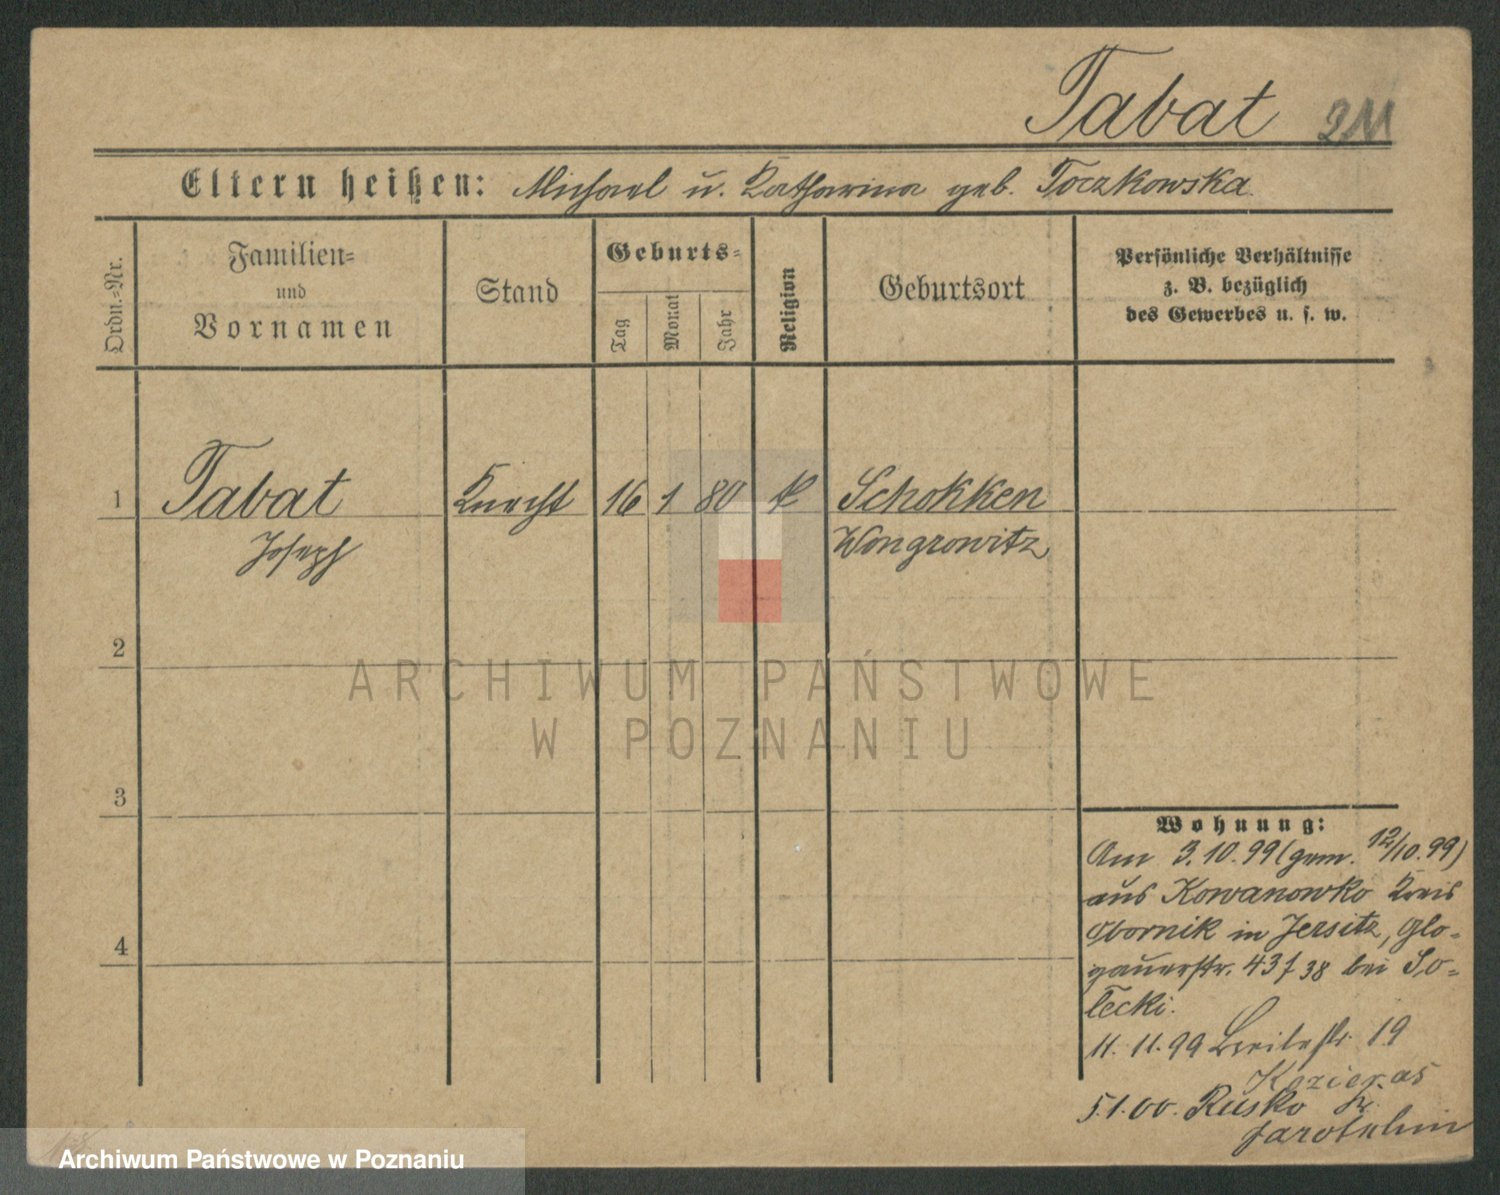 Tabat 211
Eltern heißen: Michael u. Katharina geb. Toczkowska
Ordn.-Nr.
Familien-
und
Vornamen
Stand
Geburts-
Tag
Monat
Jahr
Religion
Geburtsort
Persönliche Verhältnisse
z. B. bezüglich
des Gewerbes u. s. w.
1 Tabat Knecht 16 1 80 k Schokken
Joseph Wongrowitz
2
ARCHIWUM PAŃSTWOWE
W POZNANIU
3
Wohnung:
Am 3.10.99 (gem. 12/10.99)
aus Kowanowko Kreis
Obornik in Jersitz, Glo-
gauerstr. 43 f 38 bei So-
lecki.
4
11.11.99 Breitestr. 19
5.1.00. Rusko Kr.
Jarotschin
Archiwum Państwowe w Poznaniu